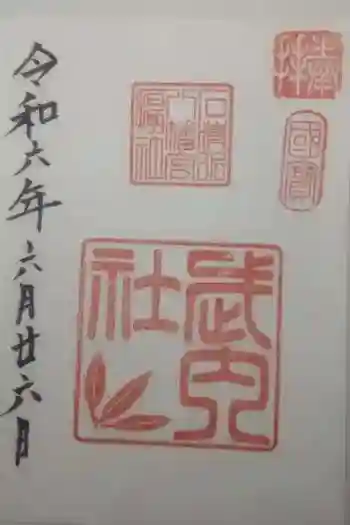 奉拝
國寶
石清水
八幡宮
武内
社
令和六年六月廿六日